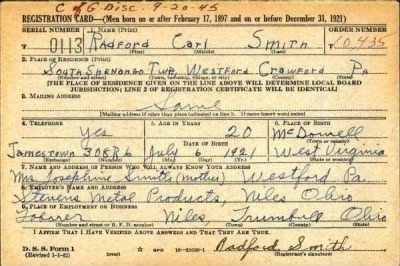 C of G. Disc. 9-20-45
REGISTRATION CARD—(Men born on or after February 17, 1897 and on or before December 31, 1921)
SERIAL NUMBER 1. NAME (Print) ORDER NUMBER
0113 Radford Carl Smith 10,435
(First) (Middle) (Last)
2. PLACE OF RESIDENCE (Print)
South Shenango Twp. Westford Crawford Pa
(Number and street) (Town, township, village, or city) (County) (State)
[THE PLACE OF RESIDENCE GIVEN ON THE LINE ABOVE WILL DETERMINE LOCAL BOARD
JURISDICTION; LINE 2 OF REGISTRATION CERTIFICATE WILL BE IDENTICAL]
3. MAILING ADDRESS
Same
[Mailing address if other than place indicated on line 2. If same insert word same]
4. TELEPHONE 5. AGE IN YEARS 6. PLACE OF BIRTH
Yes 20 McDowell
DATE OF BIRTH (Town or county)
Jamestown 308R6 July 6 1921 West Virginia
(Exchange) (Number) (Mo.) (Day) (Yr.) (State or country)
7. NAME AND ADDRESS OF PERSON WHO WILL ALWAYS KNOW YOUR ADDRESS
Mrs. Josephine Smith (Mother) Westford Pa.
8. EMPLOYER'S NAME AND ADDRESS
Stevens Metal Products, Niles Ohio
9. PLACE OF EMPLOYMENT OR BUSINESS
Niles Trumbull Ohio
(Number and street or R. F. D. number) (Town) (County) (State)
I AFFIRM THAT I HAVE VERIFIED ABOVE ANSWERS AND THAT THEY ARE TRUE.
D. S. S. Form 1
(Revised 1-1-42) Radford Smith
(Registrant's signature)